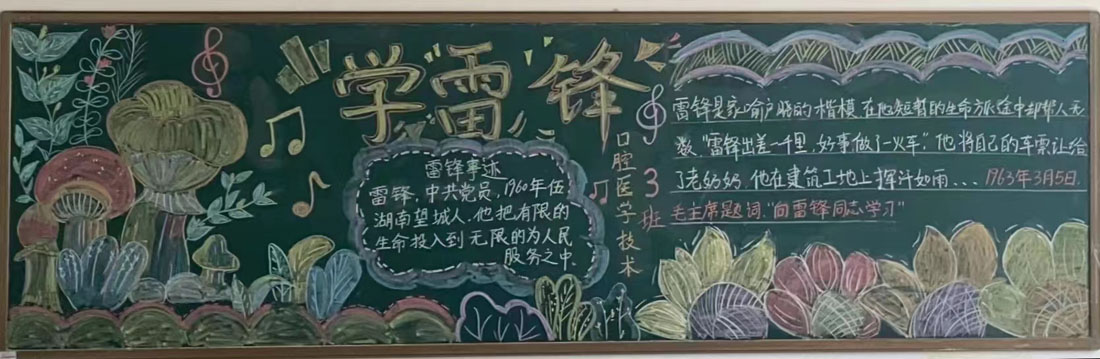 学雷锋
雷锋事迹
雷锋,中共党员,1960年伍
湖南望城人,他把有限的
生命投入到无限的为人民
服务之中
口腔医学技术
3班
雷锋是家喻户晓的楷模,在他短暂的生命旅途中却帮人无
数,"雷锋出差一千里,好事做了一火车",他将自己的车票让给
了老奶奶,他在建筑工地上挥汗如雨...1963年3月5日,
毛主席题词:"向雷锋同志学习"